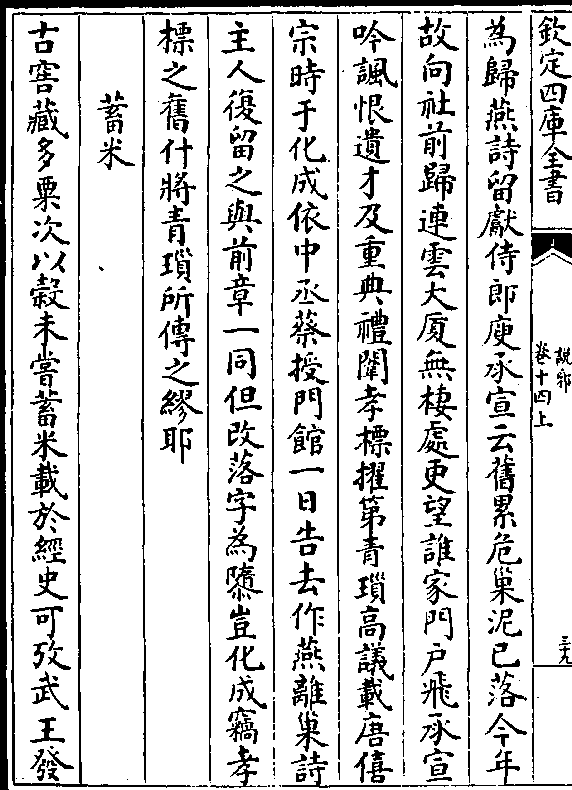 欽定四庫全書
說郛
卷十四上
三九
為歸燕詩留獻侍郎庾承宣云舊累危巢泥已落今年
故向社前歸連雲大厦無棲處更望誰家門户飛承宣
吟諷恨遺才及重典禮闈孝標擢第青瑣高議載唐僖
宗時于化成依中丞蔡授門館一日告去作燕離巢詩
主人復留之與前章一同但改落字為隳豈化成竊孝
標之舊什將青瑣所傳之繆耶
蓄米
古窖藏多粟次以穀未嘗蓄米載於經史可攷武王發